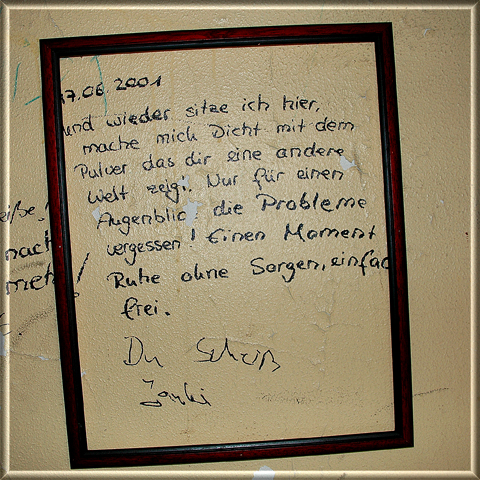 17.06.2001
und wieder sitze ich hier,
mache mich Dicht mit dem
Pulver das dir eine andere
Welt zeigt. Nur für einen
Augenblick die Probleme
vergessen! Einen Moment
Ruhe ohne Sorgen, einfac
frei.
Du Scheiß
Junki
eiße!
nach
mehr!